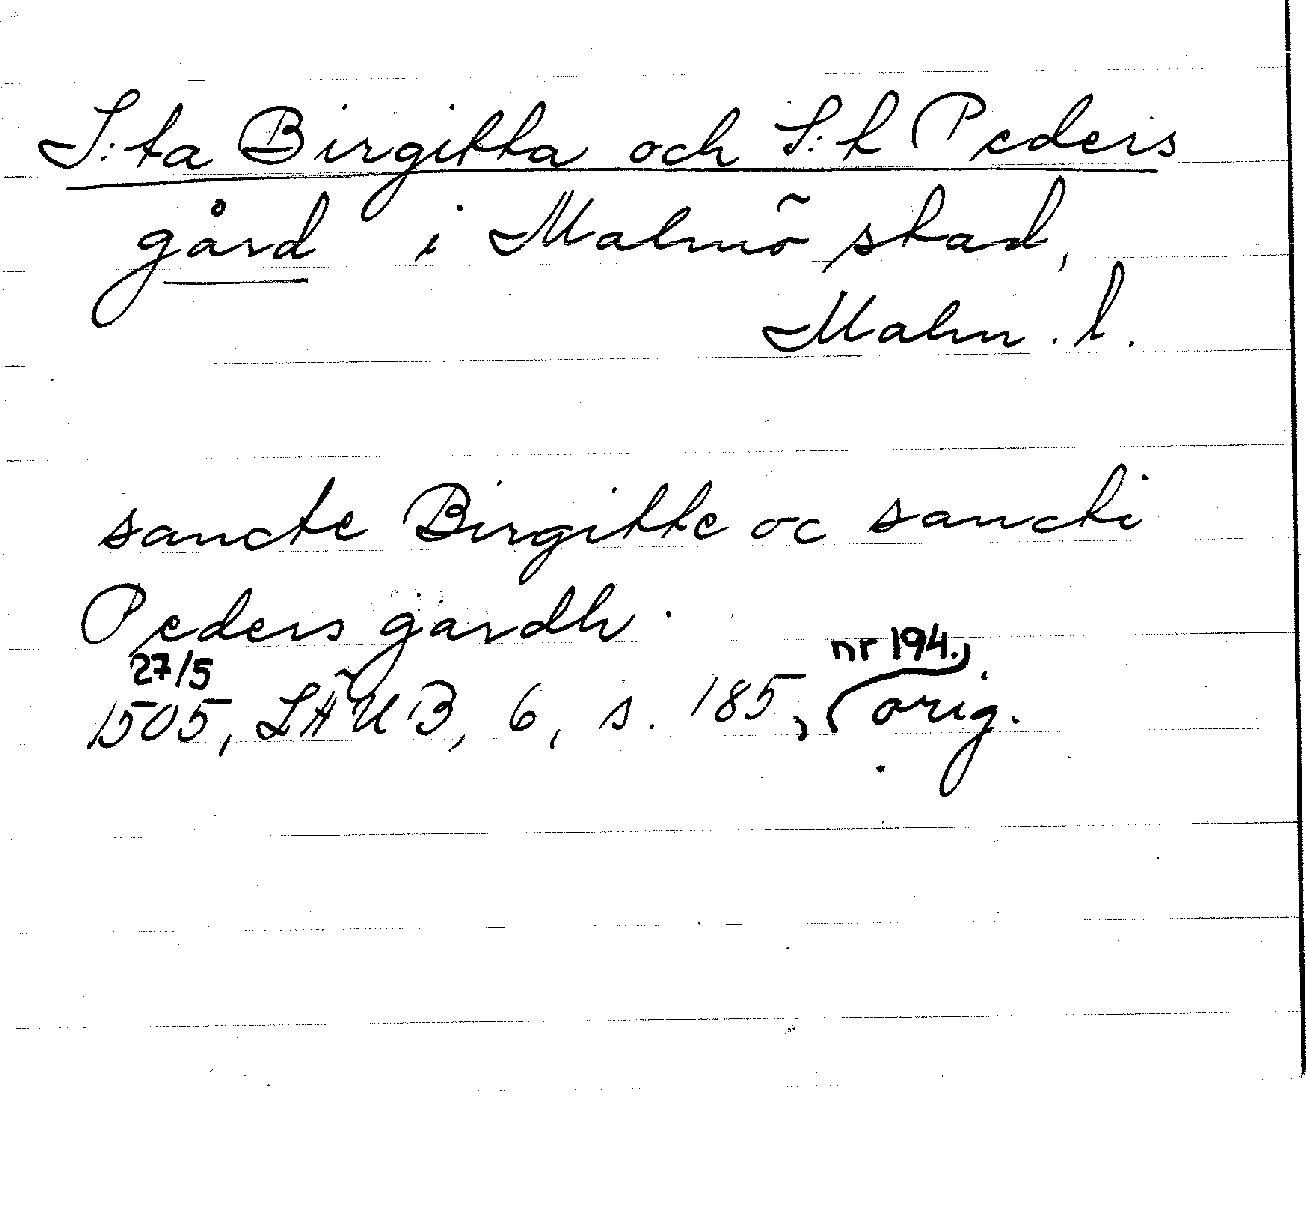 S:ta Birgitta och S:t Peders
gård i Malmö stad,
Malm. l.
sancte Birgitte oc sancti
Peders gardh.
27/5 nr 194.,
1505, LÄUB, 6, s. 185, orig.